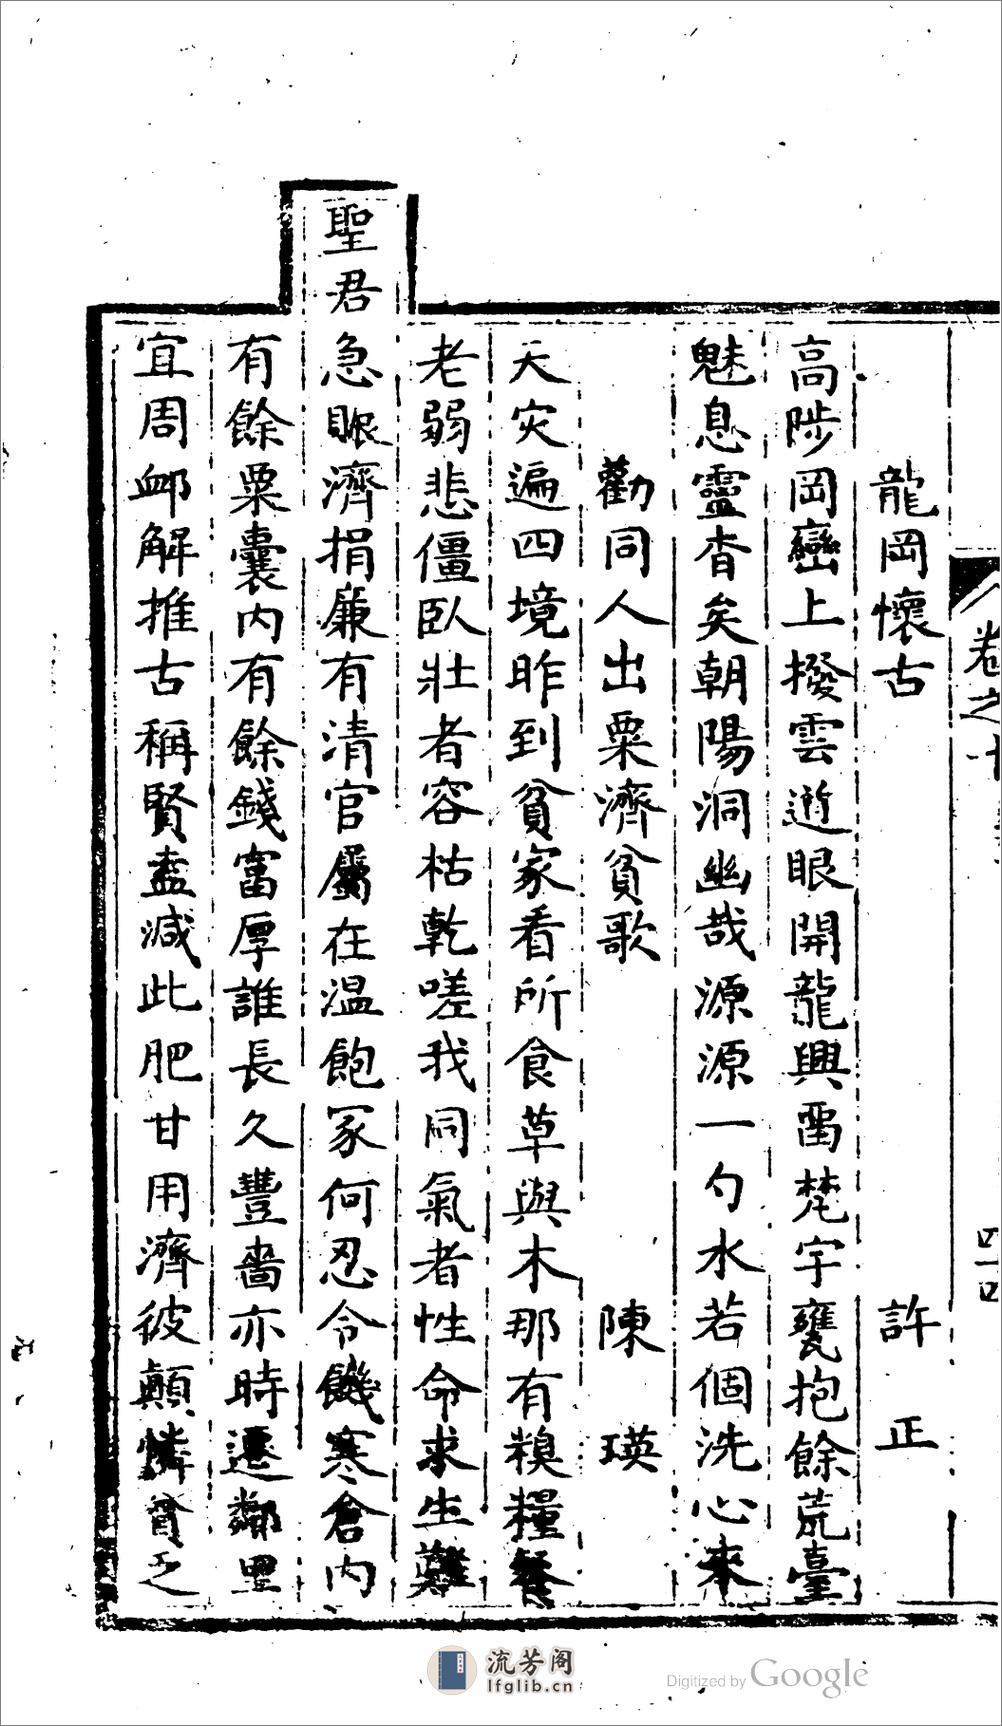 卷之十
四
龍岡懷古 許正
高陟岡巒上撥雲遊眼開龍興留梵宇甕抱餘荒臺
魅息靈杳矣朝陽洞幽哉源源一勺水若個洗心來
勸同人出粟濟貧歌 陳瑛
天灾遍四境昨到貧家看所食草與木那有糗糧餐
老弱悲僵臥壯者容枯乾嗟我同氣者性命求生難
聖君急賑濟捐廉有清官屬在溫飽家何忍令饑寒倉內
有餘粟囊內有餘錢富厚誰長久豐嗇亦時遷鄰里
宜周卹解推古稱賢盍減此肥甘用濟彼顛憐貧乏
流芳阁
lfglib.cn
Digitized by Google